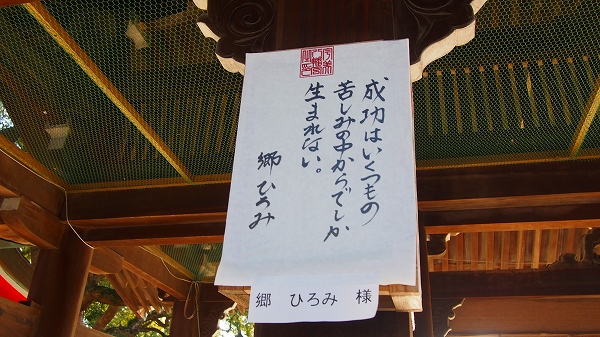 成功はいくつもの
苦しみの中からでしか
生まれない。
郷ひろみ
郷 ひろみ 様